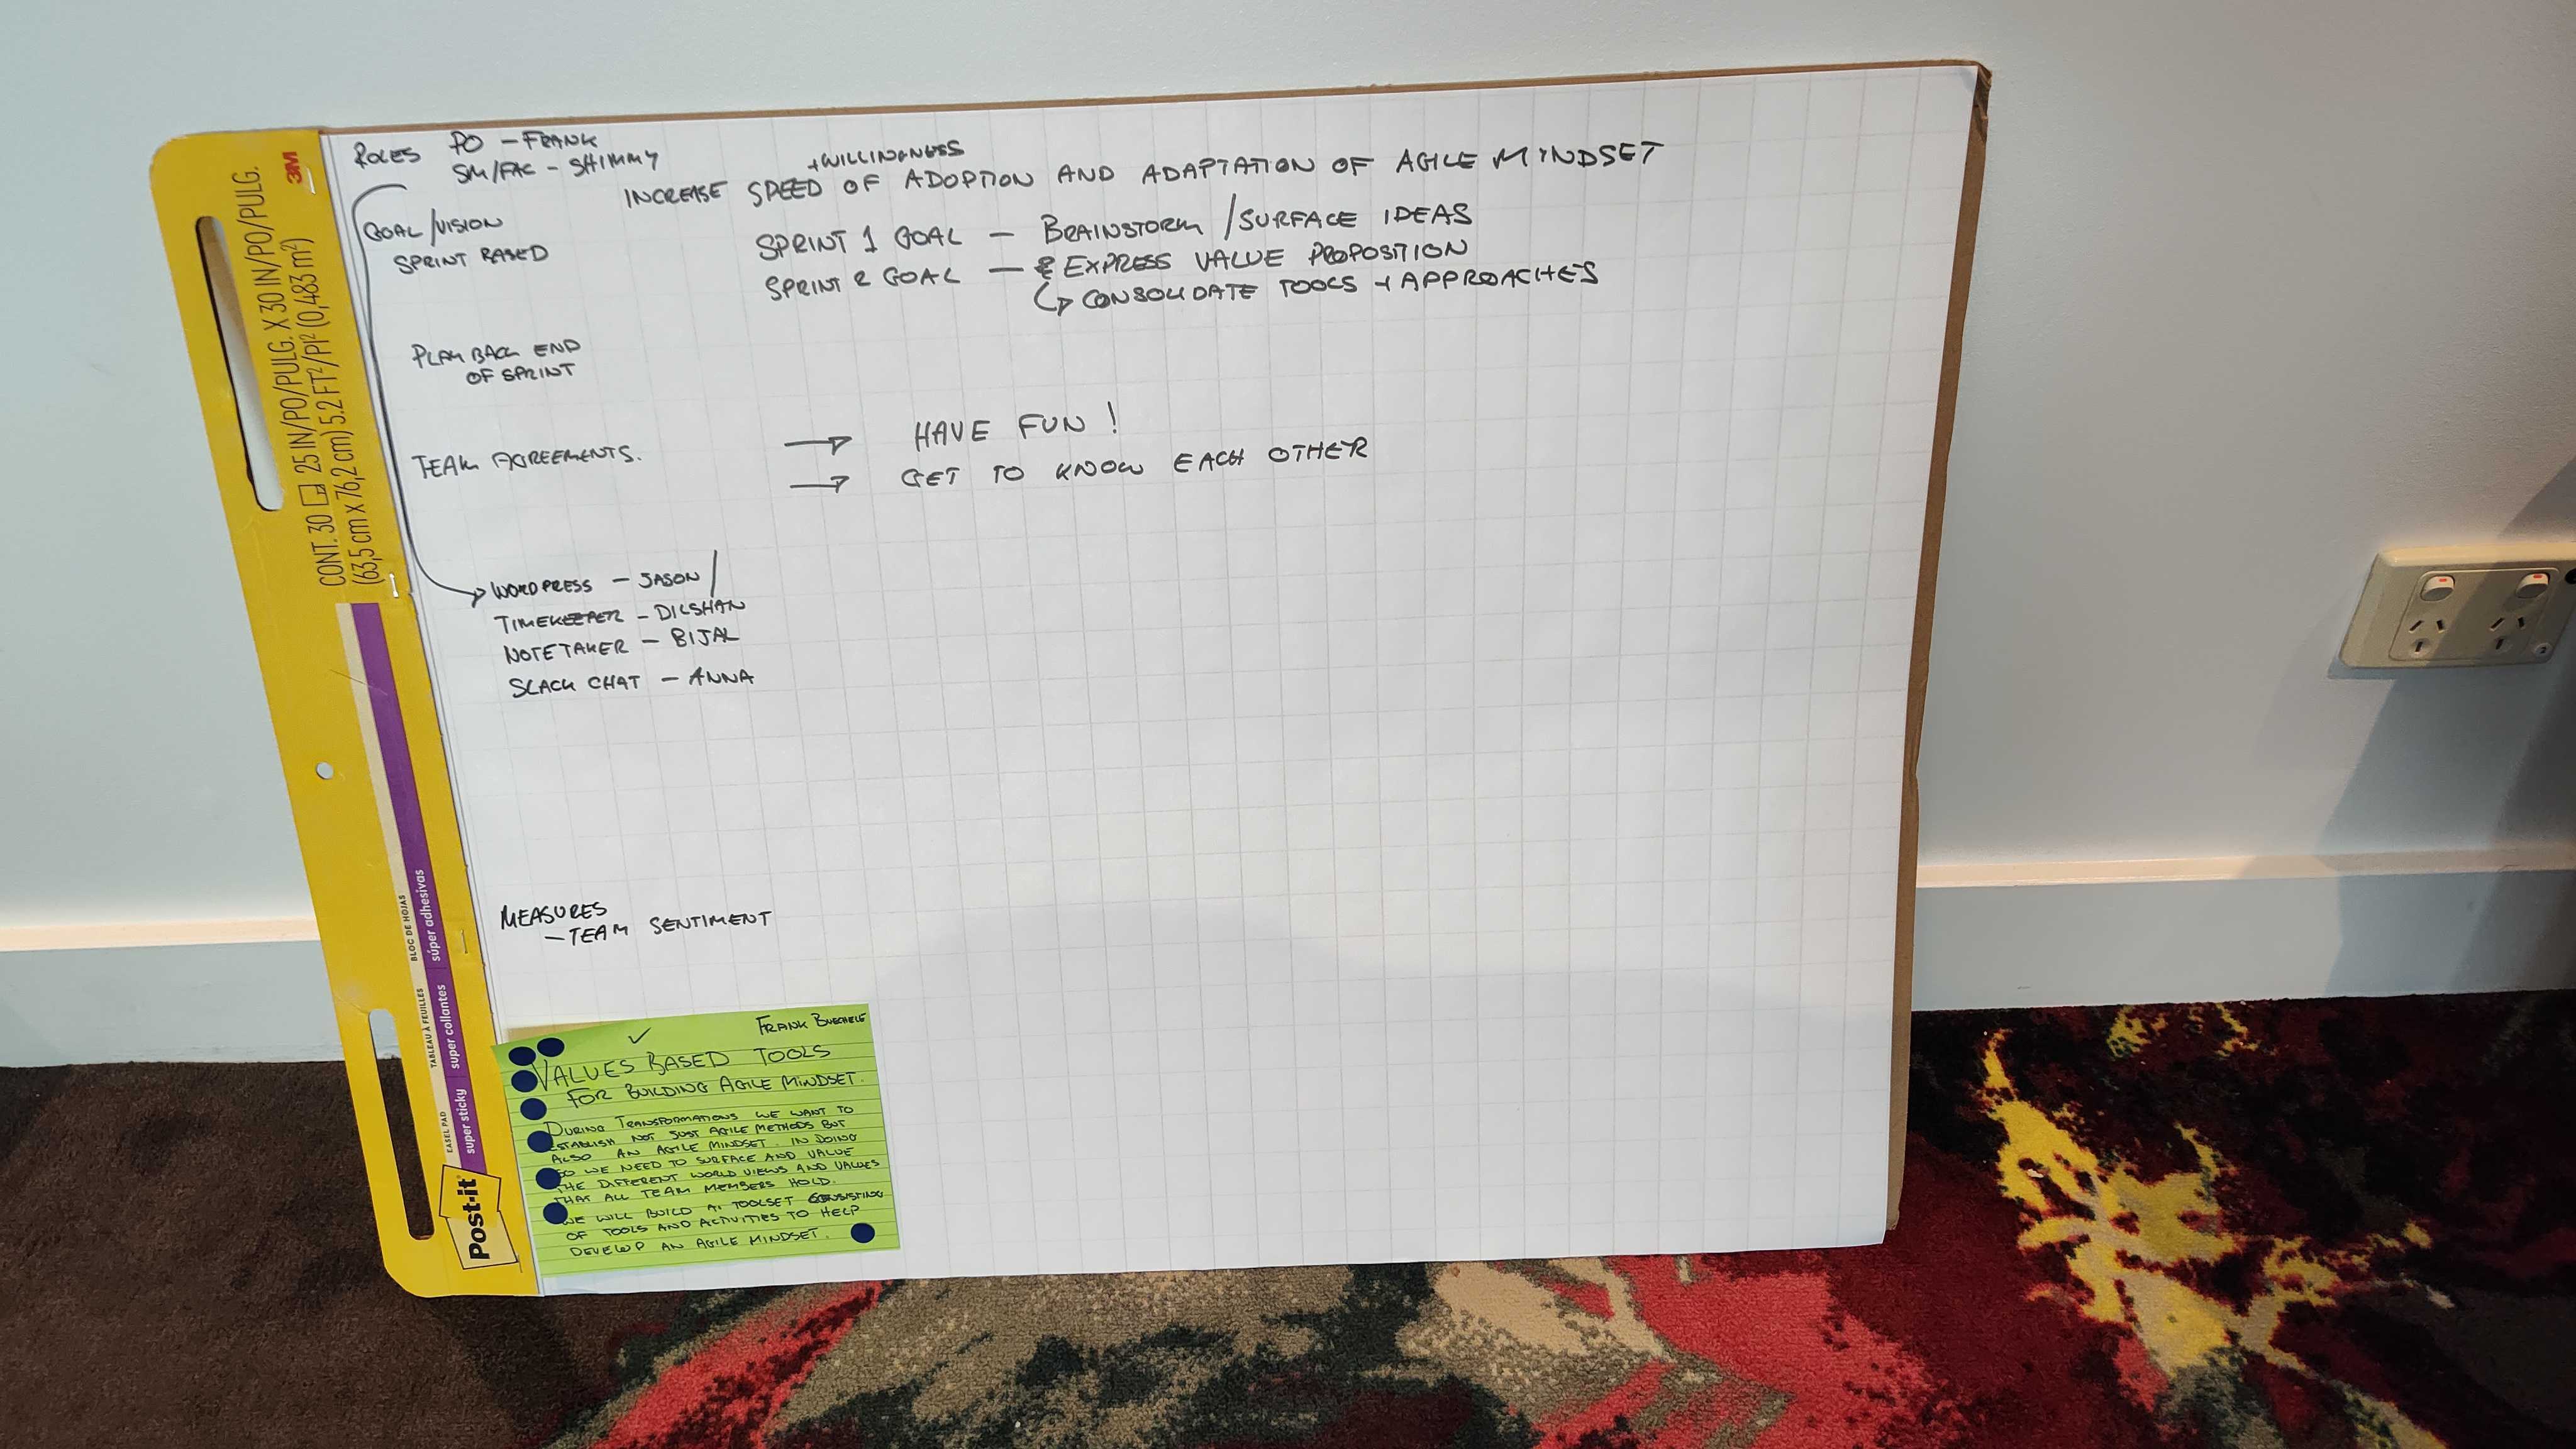 ROLES PO - FRANK
SM/FAC - SHIMMY
GOAL/VISION
SPRINT BASED
+WILLINGNESS
INCREASE SPEED OF ADOPTION AND ADAPTATION OF AGILE MINDSET
SPRINT 1 GOAL - BRAINSTORM / SURFACE IDEAS
SPRINT 2 GOAL - & EXPRESS VALUE PROPOSITION
↳ CONSOLIDATE TOOLS + APPROACHES
PLAY BACK END
OF SPRINT
TEAM AGREEMENTS.
→ HAVE FUN!
→ GET TO KNOW EACH OTHER
→ WORDPRESS - JASON /
TIMEKEEPER - DILSHAN
NOTETAKER - BIJAL
SLACK CHAT - ANNA
MEASURES
- TEAM SENTIMENT
✓ FRANK
VALUES BASED TOOLS
FOR BUILDING AGILE MINDSET.
DURING TRANSFORMATIONS WE WANT TO
ESTABLISH NOT JUST AGILE METHODS BUT
ALSO AN AGILE MINDSET. IN DOING
SO WE NEED TO SURFACE AND VALUE
THE DIFFERENT WORLD VIEWS AND VALUES
THAT ALL TEAM MEMBERS HOLD.
WE WILL BUILD A TOOLSET CONSISTING
OF TOOLS AND ACTIVITIES TO HELP
DEVELOP AN AGILE MINDSET.
3M
CONT. 30 25 IN/PO/PULG. X 30 IN/PO/PULG.
(63,5 cm x 76,2 cm) 5.2 FT²/PI² (0,483 m²)
EASEL PAD TABLEAU À FEUILLES BLOC DE HOJAS
super sticky super collantes súper adhesivas
Post-it